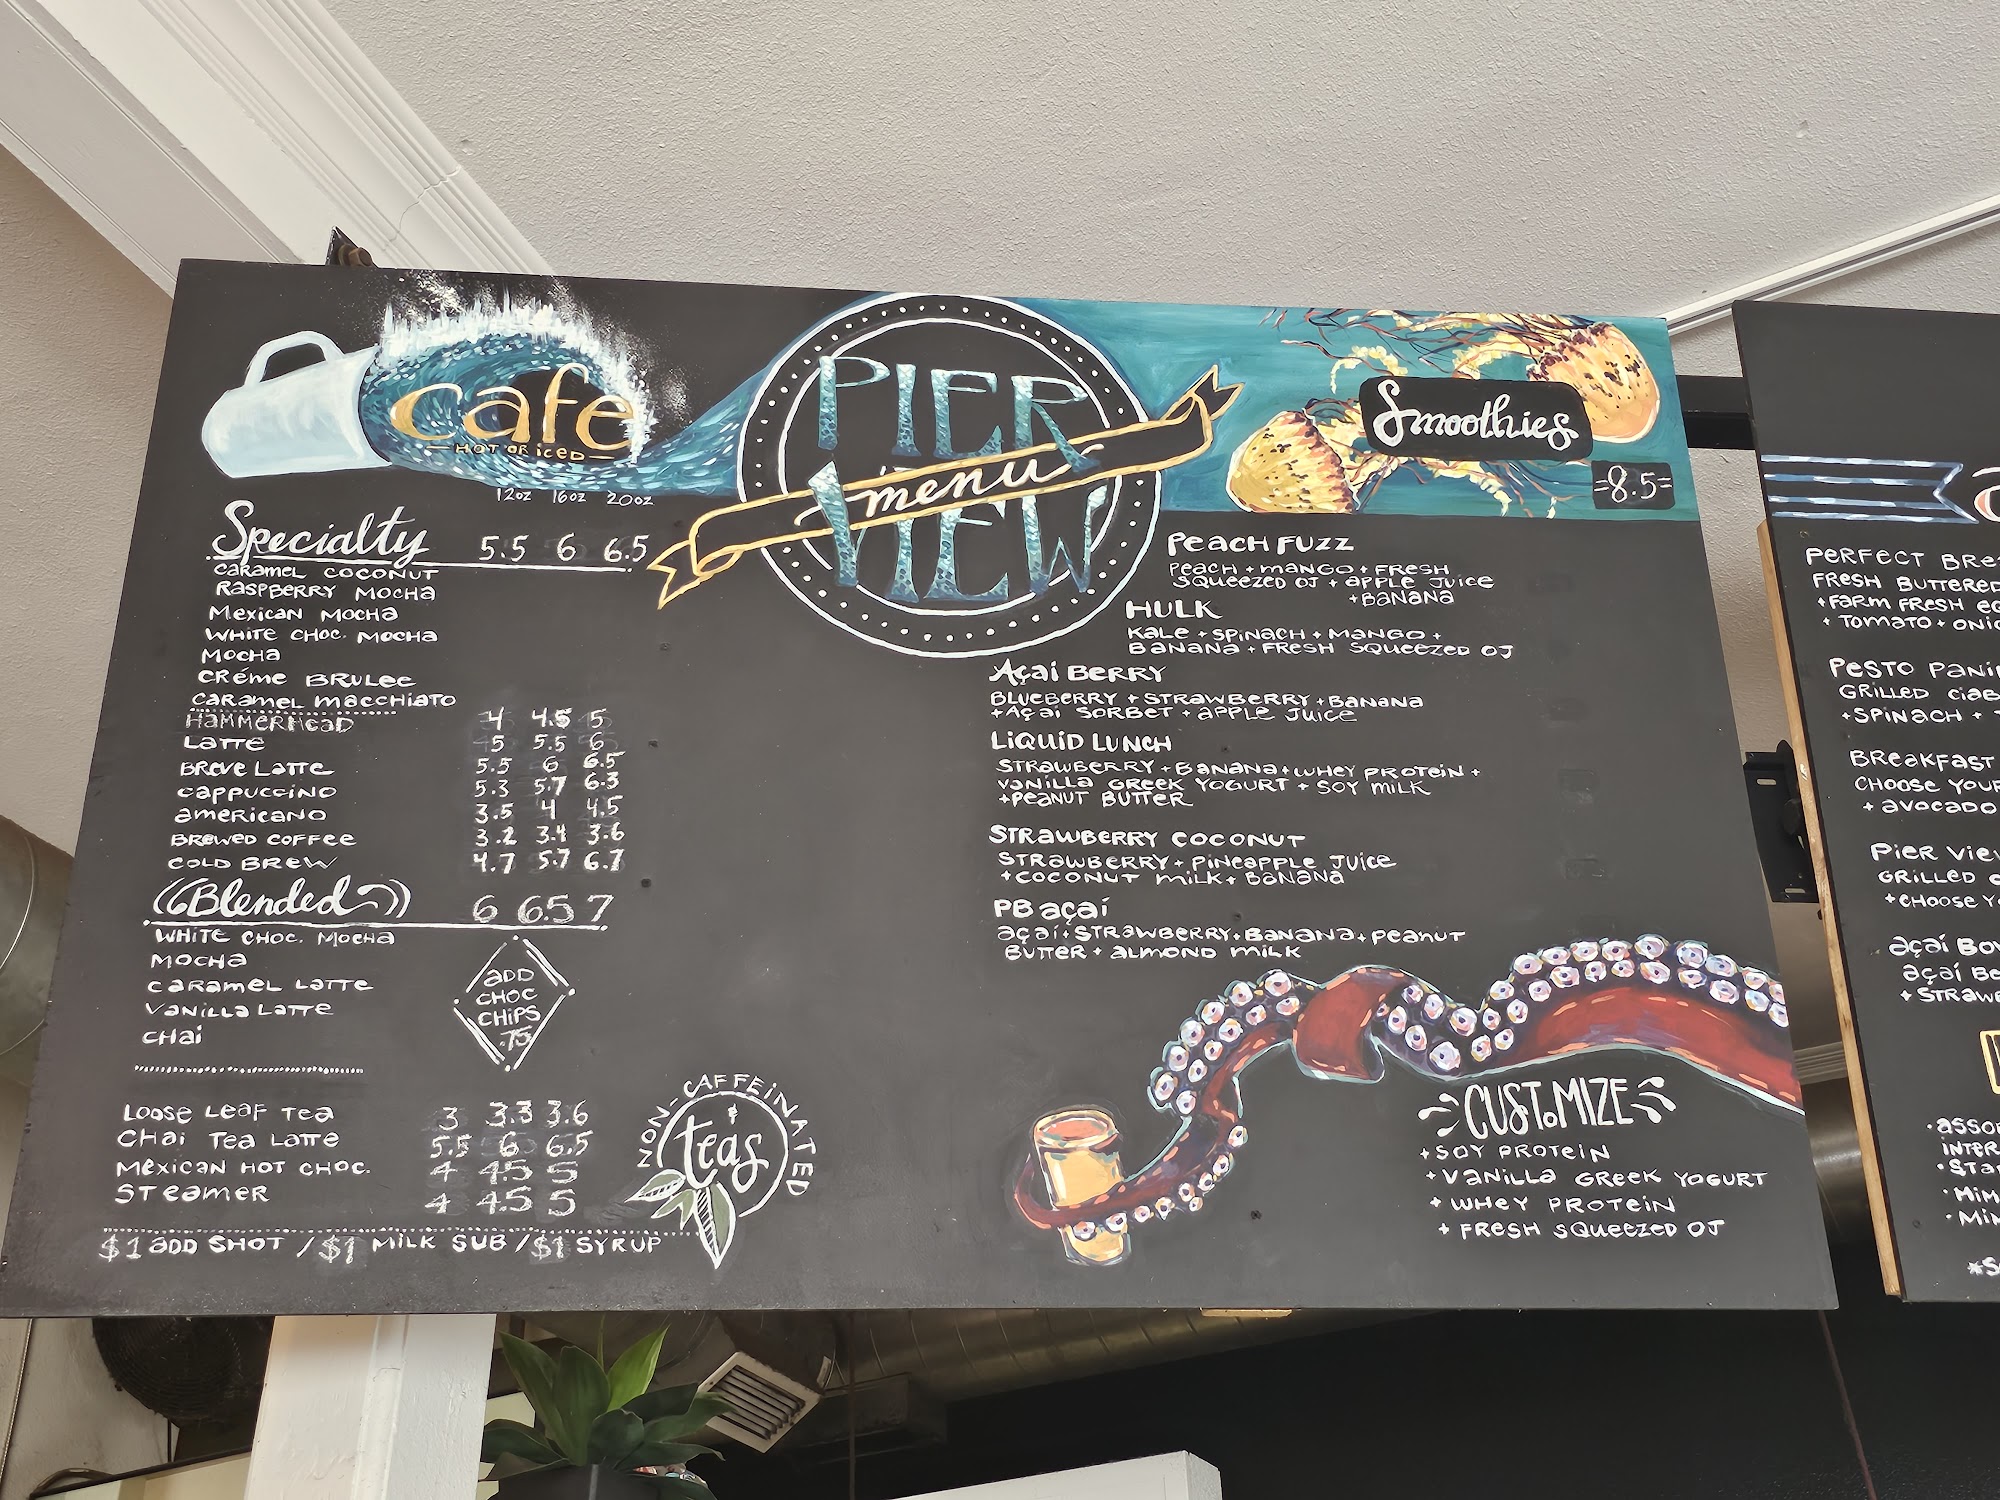 cafe
HOT OR ICED
12oz 16oz 20oz
Specialty 5.5 6 6.5
CARAMEL COCONUT
RASPBERRY MOCHA
MEXICAN MOCHA
WHITE CHOC. MOCHA
MOCHA
CRÉME BRULEE
CARAMEL MACCHIATO
HAMMERHEAD 4 4.5 5
LATTE 5 5.5 6
BREVE LATTE 5.5 6 6.5
CAPPUCCINO 5.3 5.7 6.3
AMERICANO 3.5 4 4.5
BREWED COFFEE 3.2 3.4 3.6
COLD BREW 4.7 5.7 6.7
Blended 6 6.5 7
WHITE CHOC. MOCHA
MOCHA
CARAMEL LATTE
VANILLA LATTE
CHAI
ADD
CHOC
CHIPS
.75
LOOSE LEAF TEA 3 3.3 3.6
CHAI TEA LATTE 5.5 6 6.5
MEXICAN HOT CHOC. 4 4.5 5
STEAMER 4 4.5 5
NON-CAFFEINATED
& teas
$1 ADD SHOT / $1 MILK SUB / $1 SYRUP
PIER
menu
VIEW
Smoothies
=8.5=
PEACH FUZZ
PEACH + MANGO + FRESH
SQUEEZED OJ + APPLE JUICE
+ BANANA
HULK
KALE + SPINACH + MANGO +
BANANA + FRESH SQUEEZED OJ
AÇAI BERRY
BLUEBERRY + STRAWBERRY + BANANA
+ AÇAI SORBET + APPLE JUICE
LIQUID LUNCH
STRAWBERRY + BANANA + WHEY PROTEIN +
VANILLA GREEK YOGURT + SOY MILK
+ PEANUT BUTTER
STRAWBERRY COCONUT
STRAWBERRY + PINEAPPLE JUICE
+ COCONUT MILK + BANANA
PB AÇAÍ
AÇAÍ + STRAWBERRY + BANANA + PEANUT
BUTTER + ALMOND MILK
CUSTOMIZE
+ SOY PROTEIN
+ VANILLA GREEK YOGURT
+ WHEY PROTEIN
+ FRESH SQUEEZED OJ
PERFECT
FRESH BUTTERED
+ FARM FRESH
+ TOMATO +
PESTO
GRILLED
+ SPINACH +
BREAKFAST
CHOOSE
+ AVOCADO
PIER
GRILLED
+ CHOOSE
AÇAÍ
AÇAÍ
+